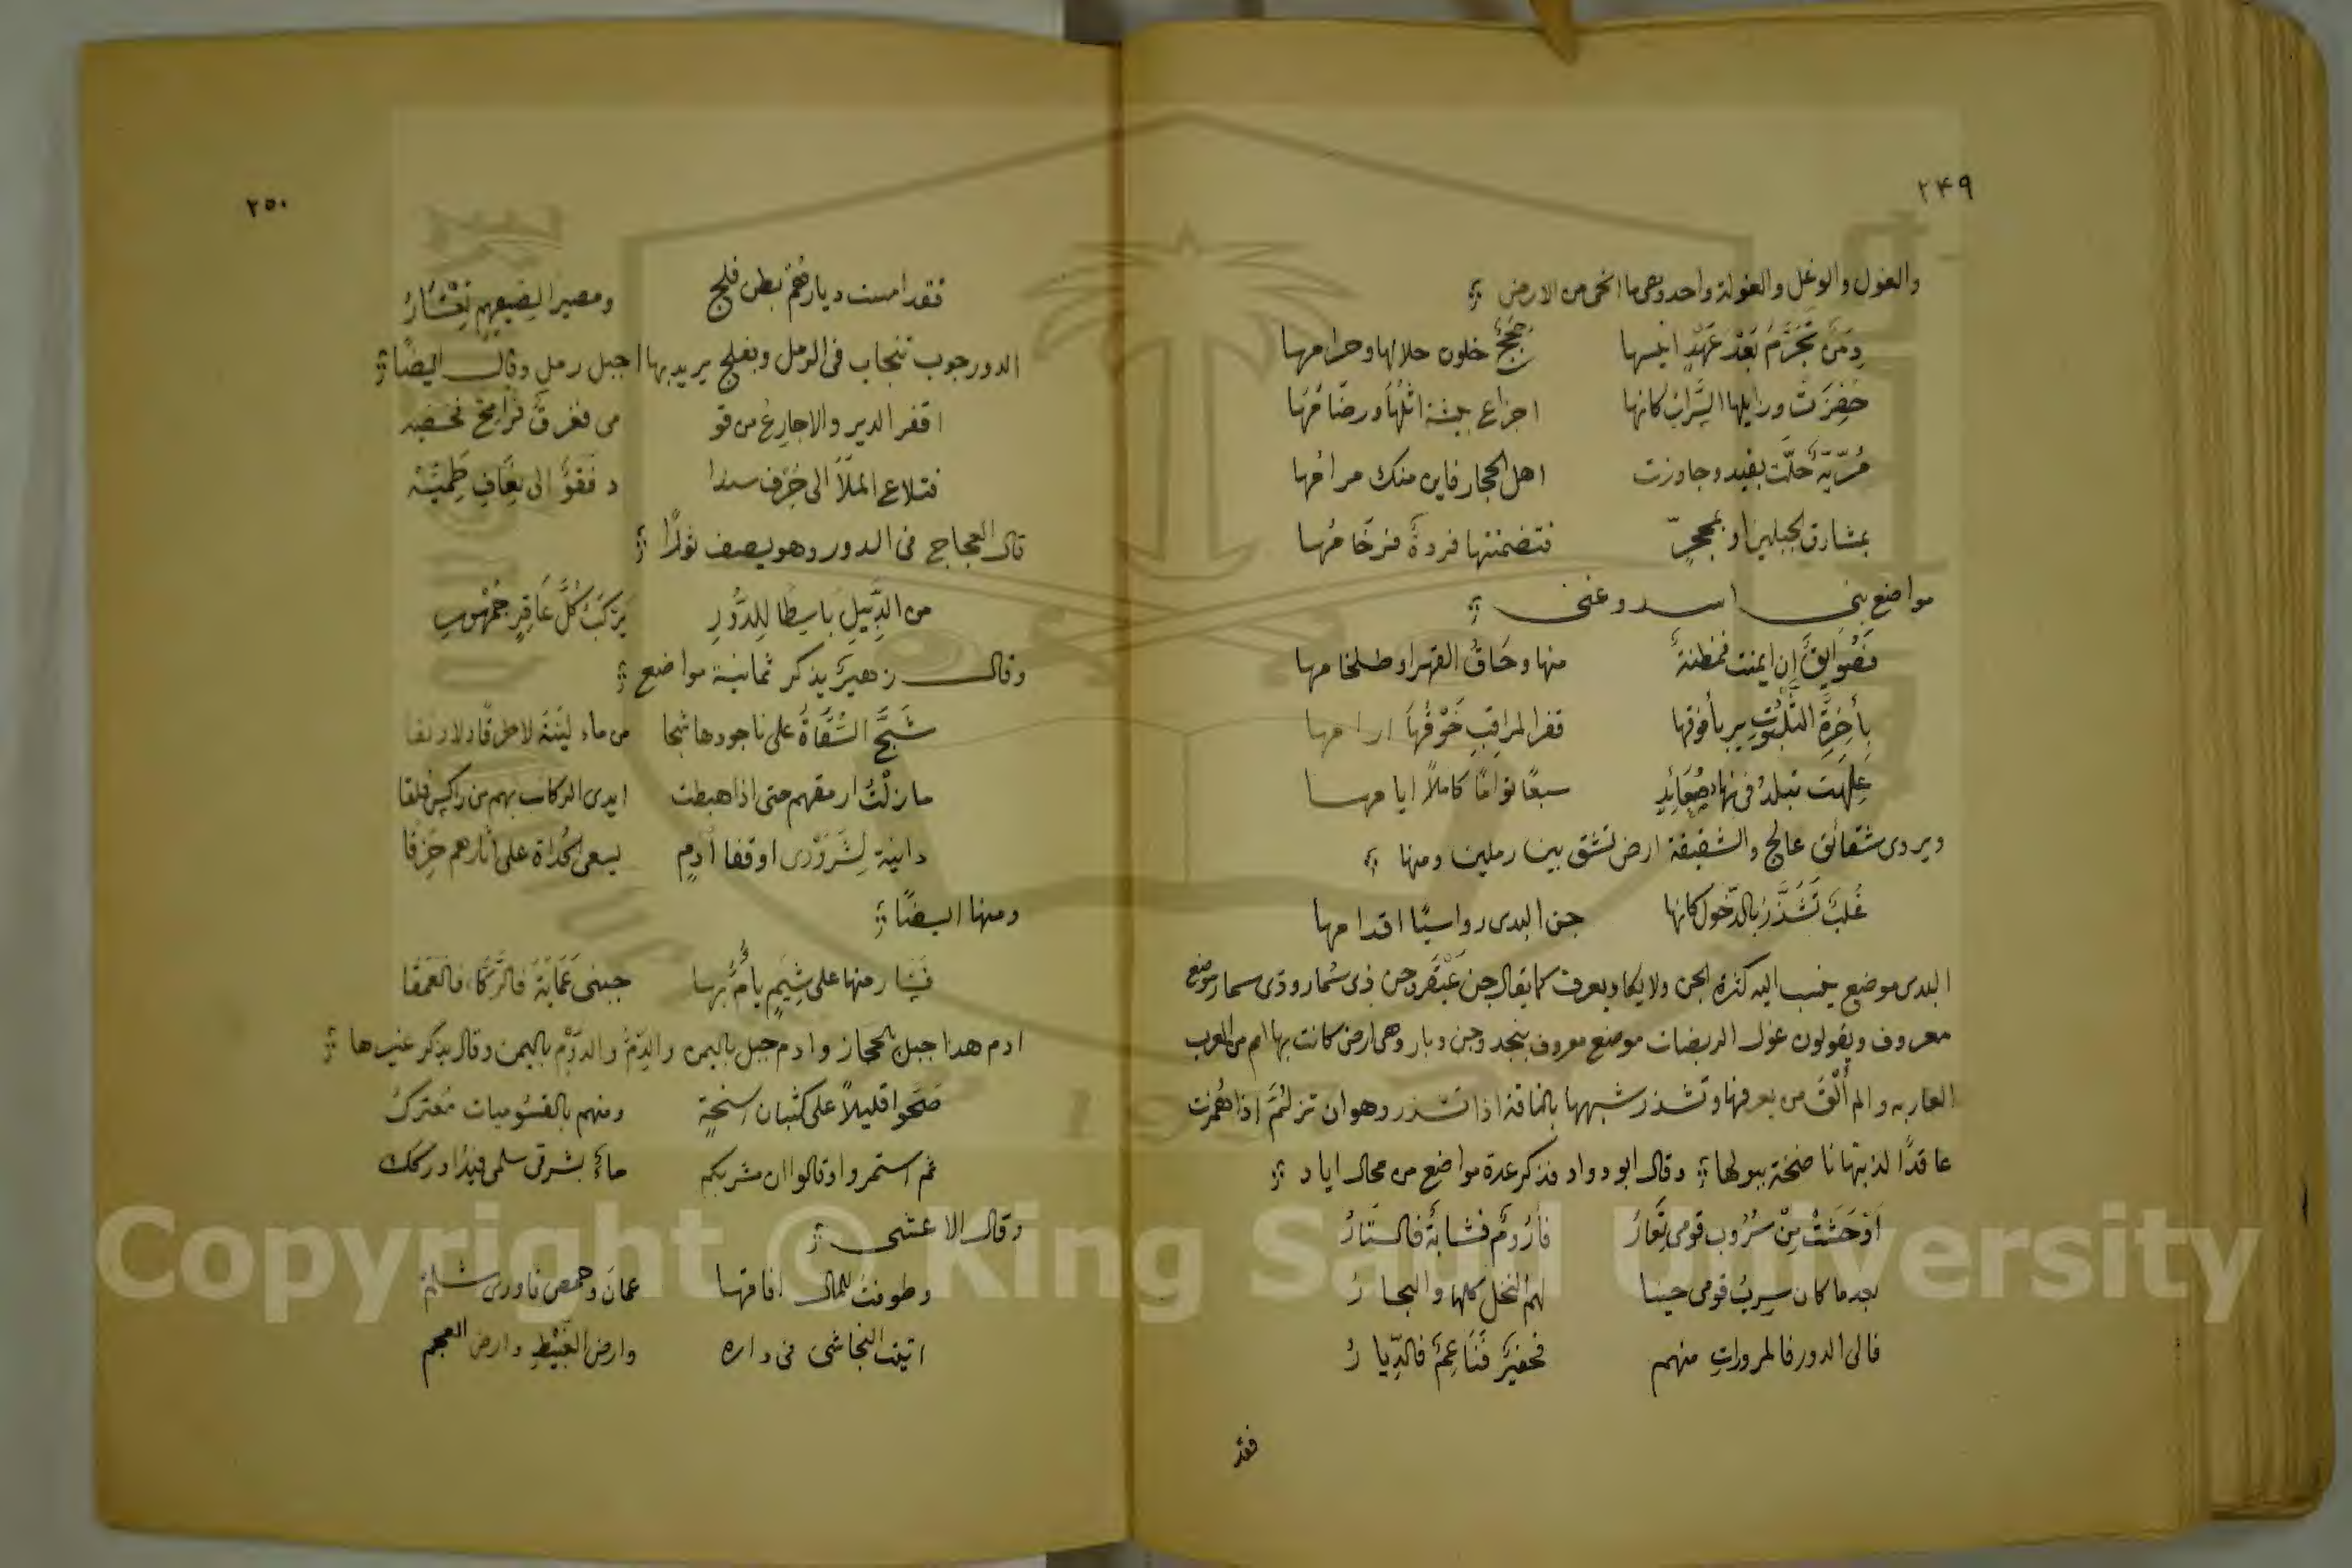 ٢٤٩
والغول والوغل والغولة واحد وهى ما انخمى من الارض
دِمَنٌ تَجَرَّمَ بَعْدَ عَهْدِ انيسها حِجَجٌ خلون حلالها وحرامها
حُفِزَتْ وزايلها السَّراب كانها اجزاع بيشة اثلُهَا ورضَامُهَا
مُرّيّةٌ حَلَّت بفيد وجاورت اهل الحجاز فاين منك مرامُها
بمشارق الجبلين او بمحجرٍ فتضمنتها فردةٌ فرخَامُها
مواضع بنى اسد وغنى
فَصُوَايقٌ إن ايمنت فمظنةٌ منها وحَافُ القهر او طلخامها
بأَحِزَّةِ الثَّلَبُوتِ يربأ فوقها قفر المراقب خَوْفُهَا ارامها
عَلِهَت تبلدُ فى نهاء صُعَائِدٍ سبعًا تواما كاملاً ايامها
ويروى شقائق عالج والشقيقة ارض تشق بين رملين ومنها
غُلبٌ تَشَذَّرُ بالدّخول كانها جن البدى رواسيًا اقدامها
البدى موضع ينسب اليه كثرة الجن ولا يكاد يعرف كما يقال جن عَبْقَر وجن ذى سُمار وذى سمار موضع
معروف ويقولون غول الربضات موضع معروف بنجد وجن وبار وهى ارض كانت بها امم من العرب
العاربه والم أَلْقَ من يعرفها وتشذر شبهها بالناقة اذا تشذر وهو ان تزلئم اذا هُمزت
عاقدًا لذنبتها ناضخة ببولها وقال ابو دواد فذكر عدة مواضع من محال اياد
أوْحَشَتْ مِنْ سُرُوب قومى تِعَارُ فأَرُومٌ فشابةٌ فالستَارُ
بعد ما كان سِربُ قومى حينا لهم النخل كلها والبحارُ
فالى الدور فالمروراتِ منهم فحفيرٌ فَنَاعِمٌ فالدِّيارُ
فقد
٢٥٠
فقد امست ديارهُمْ بطن فلج ومصيرا لصيفهم تِعْشَارُ
الدور جوب تنجاب فى الرمل وبفلج يريد بها جبل رمل وقال ايضًا
اقفر الدير والاجارع من قو مى فعَرقٌ فرامِحٌ فخفيه
فتلاع الملَا الى جُرْف سندا د فَقَوٌّ الى نِعَافِ طَمِيَّهْ
قال العجاج فى الدور وهو يصف ثورًا
من الدَّبيلِ باسِطًا لِلدُّورِ يَرْكَبُ كُلَّ عَاقِرٍ جُمْهُورِ
وقال زهيرٌ يذكر ثمانية مواضع
شَجَّ السُّقَاةُ على ناجودها شبما من ماء لينَةَ لا طرقًا ولا رنقا
ما زلتُ ارمقهم حتى اذا هبطت ايدى الركاب بهم من راكس فلقا
دانية لِشَرَوْرى او قفا أَدَمٍ يسعى الحُداة على اثارهم حِزَقًا
ومنها ايضًا
فَسَار منها على شِيَمٍ يأمُّ بها جبنى عَمَايَةَ فالرَّكَاء فالعَمَقَا
ادم هذا جبل بالحجاز وادم جبل باليمن والدِّمُ والدَّوْم باليمن وقال يذكر غيرها
ضَحّوا قليلاً على كثبان اسنحةٍ ومنهم بالقسُوميات مُعتركُ
ثم استمروا وقالوا ان مشربكم ماءٌ بشرقى سلمى فيدُ او ركك
وقال الاعشى
وطوفتُ للمال افاقها عمان وحمص فاورى شلم
اتيت النجاشى فى داره وارض النَّبيْطِ وارض العجم
Copyright © King Saud University